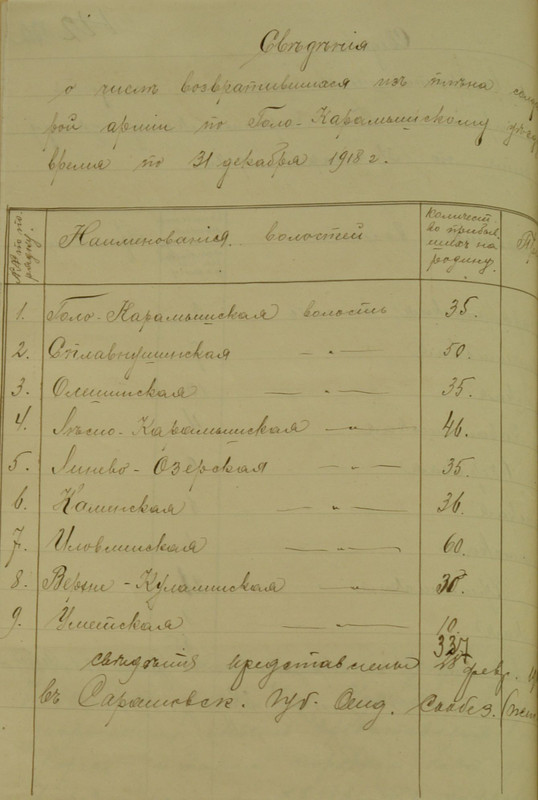 Свѣдѣнія
о числѣ возвратившихся изъ плѣна
рой арміи по Голо-Карамышскому
время по 31 декабря 1918 г.
№№ по по-
рядку.
Наименованія волостей
Количест
во прибыв
ших на
родину.
1. Голо-Карамышская волость 35.
2. Сплавнушинская — " — 50.
3. Олешинская — " — 35.
4. Лѣсно-Карамышская — " — 46.
5. Линево-Озерская — " — 35.
6. Каменская — " — 36.
7. Иловлинская — " — 60.
8. Верхне-Кулалинская " 30.
9. Уметская — " — 10.
337
свѣдѣнія представлены 28 февр.
въ Саратовск. Губ. Отд.